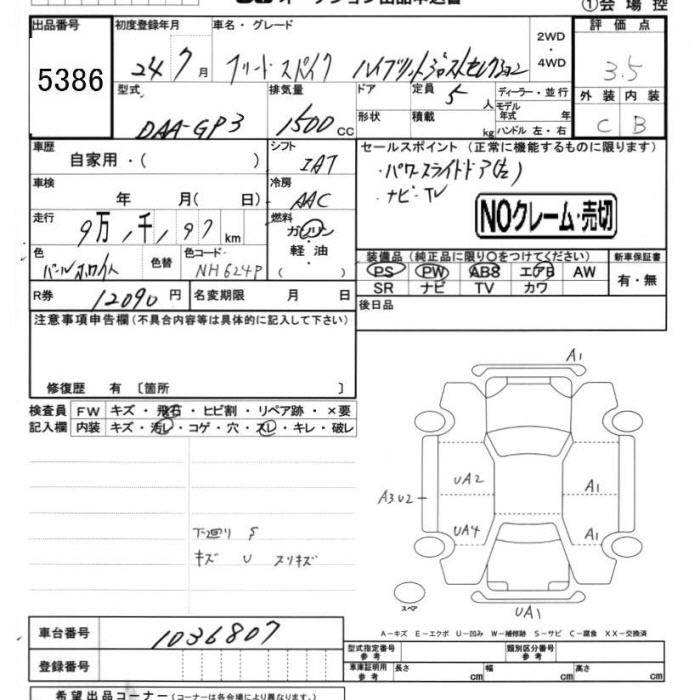 ①会場控
出品番号
5386
初度登録年月
24 7月
車名・グレード
フリード スパイク ハイブリットジャストセレクション
2WD
・
4WD
評価点
3.5
型式
DAA-GP3
排気量
1500 CC
ドア
形状
定員
5人
積載
kg
ディーラー・並行
モデル
年式 年
ハンドル 左・右
外装 内装
C B
車歴
自家用・( )
シフト
IAT
車検
年 月( 日)
冷房
AAC
走行
9万 1千 97 km
燃料
ガソリン
・
軽油
( )
色
パールホワイト
色替
色コード
NH624P
R券
12090 円
名変期限 月 日
セールスポイント(正常に機能するものに限ります)
・パワースライドドア(左)
・ナビ・TV
NOクレーム・売切
装備品(純正品に限り○をつけてください)
PS PW ABS エアB AW
SR ナビ TV カワ
新車保証書
有・無
後日品
注意事項申告欄(不具合内容等は具体的に記入して下さい)
修復歴 有〔箇所 〕
検査員
記入欄
FW キズ・飛石・ヒビ割・リペア跡・×要
内装 キズ・汚レ・コゲ・穴・スレ・キレ・破レ
下廻り S
キズ U スリキズ
A1
UA2
A1
A3U2
UA4
A1
スペア
UA1
A−キズ E−エクボ U−凹み W−補修跡 S−サビ C−腐食 XX−交換済
車台番号
1036807
登録番号
型式指定番号
参考
類別区分番号
参考
車庫証明用
参考
長さ cm
幅 cm
高さ cm
希望出品コーナー(コーナーは会場により異なります。)